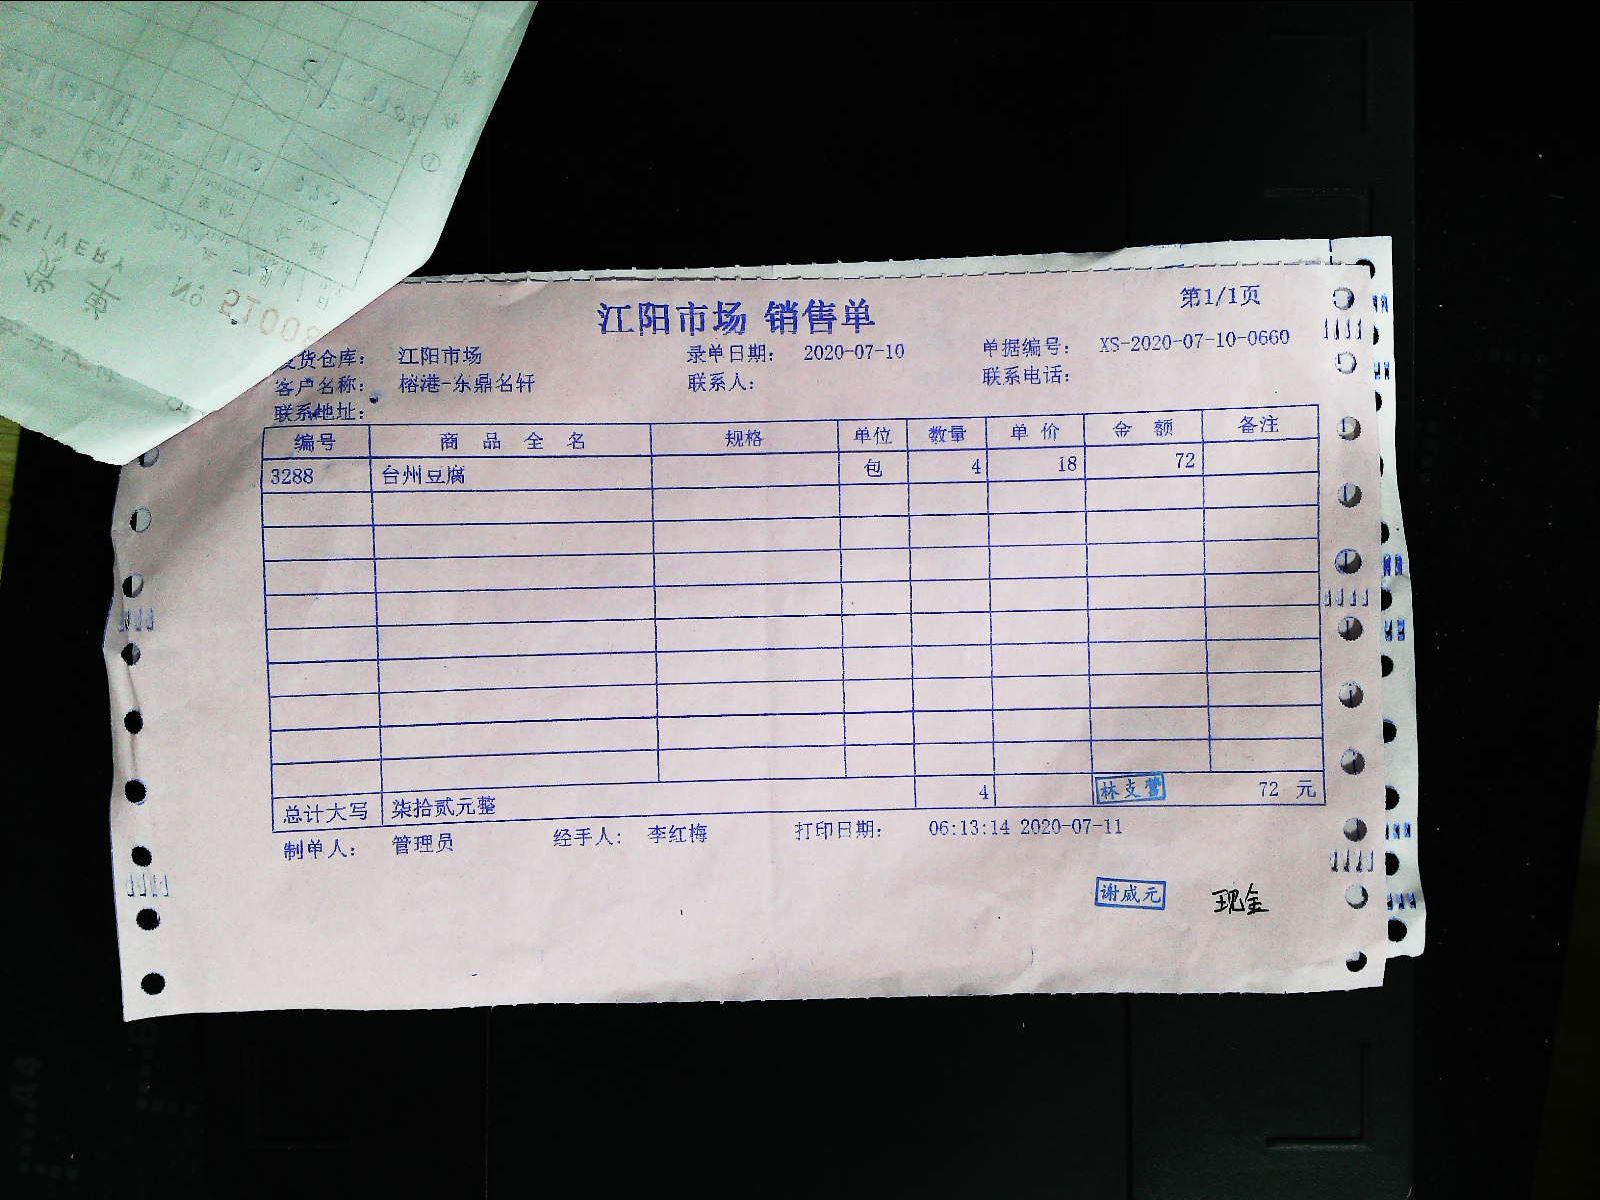 DELIVERY
单
No 51008
江阳市场 销售单
第1/1页
发货仓库: 江阳市场 录单日期: 2020-07-10 单据编号: XS-2020-07-10-0660
客户名称: 榕港-东鼎名轩 联系人: 联系电话:
联系地址:
编号 商品全名 规格 单位 数量 单价 金额 备注
3288 台州豆腐 包 4 18 72
总计大写 柒拾贰元整 4 林支营 72 元
制单人: 管理员 经手人: 李红梅 打印日期: 06:13:14 2020-07-11
谢威元 现金